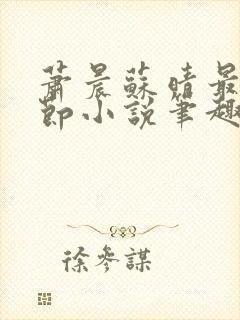 蕭晨蘇晴最
節小說筆趣
徐參謀